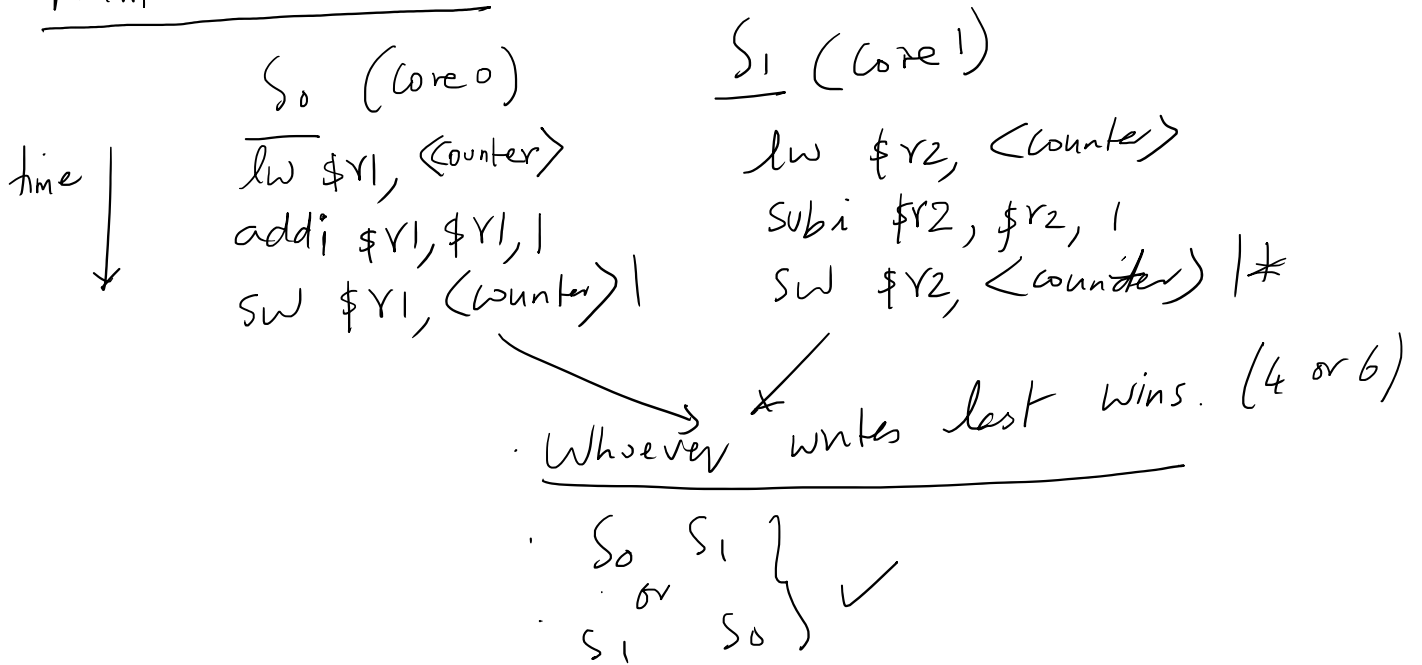 S0 (core 0)
S1 (core 1)
time
lw $r1, <counter>
addi $r1, $r1, 1
sw $r1, <counter> |
lw $r2, <counter>
subi $r2, $r2, 1
sw $r2, <counter> | *
Whoever writes last wins. (4 or 6)
S0 S1
or
S1 S0